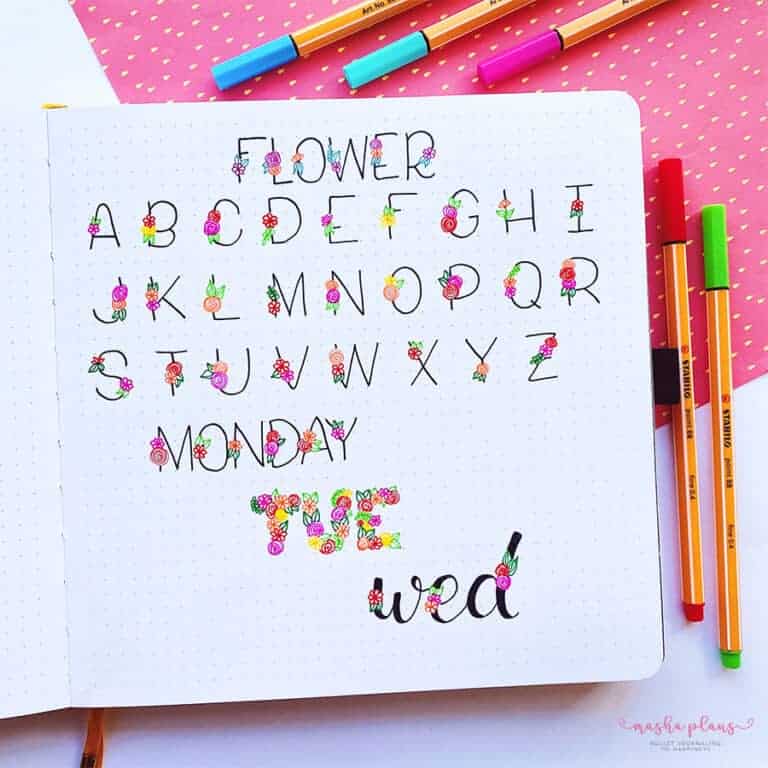 Art.No.
FLOWER
A B C D E F G H I
J K L M N O P Q R
S T U V W X Y Z
MONDAY
TUE
wed
STABILO point 88 fine 0.4
STABILO point 88 fine 0.4
masha plans
BULLET JOURNALING
TO HAPPINESS